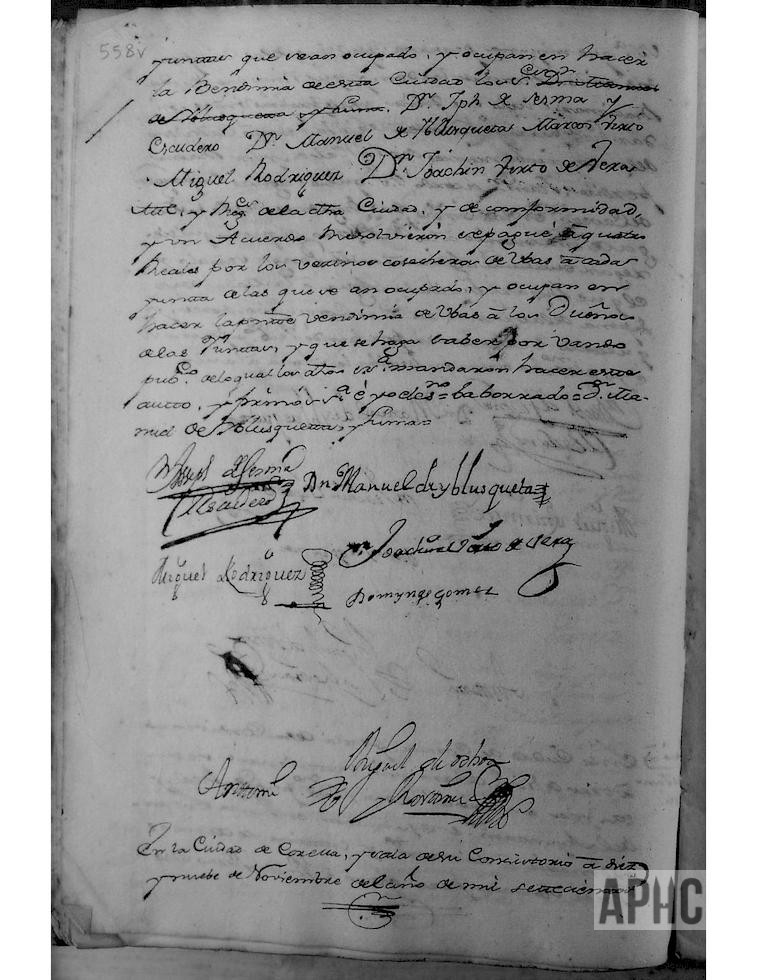 558v
yuntas que sean ocupado, y ocupan en hacer
la Bendimia de esta Ciudad los Srs.
de Yblusqueta y Luna. Dn. Jph de sesma y
Escudero Dn. Manuel de Yblusqueta Marcos Virto
Miguel Rodriguez Dn. Joachin Virto de Vera
Alle. y Regs. de la dha Ciudad, y de conformidad,
y un Acuerdo Resolvieron se pague a quatro
Reales por los vezinos cosecheros de Vbas a cada
yunta de las que se an ocupado, y ocupan en
hacer la pnte vendimia de Vbas a los Dueños
de las Yuntas, y que se haga saber por vando
pubco. de lo qual los dhos mandaron hacer este
autto, y firmo é yo el esno = baborrado = Dn. Ma-
nuel de Yblusqueta y Luna =
Joseph de Sesma
y Escudero
Dn Manuel de yblusqueta
Joachin Virto de Vera
Miguel Rodriguez
Domyngo gomez
Miguel de
Antemi
En la Ciudad de Corella, y sala de su Consistorio a diez
y nuebe de Noviembre del año de mil settecientos
APHC